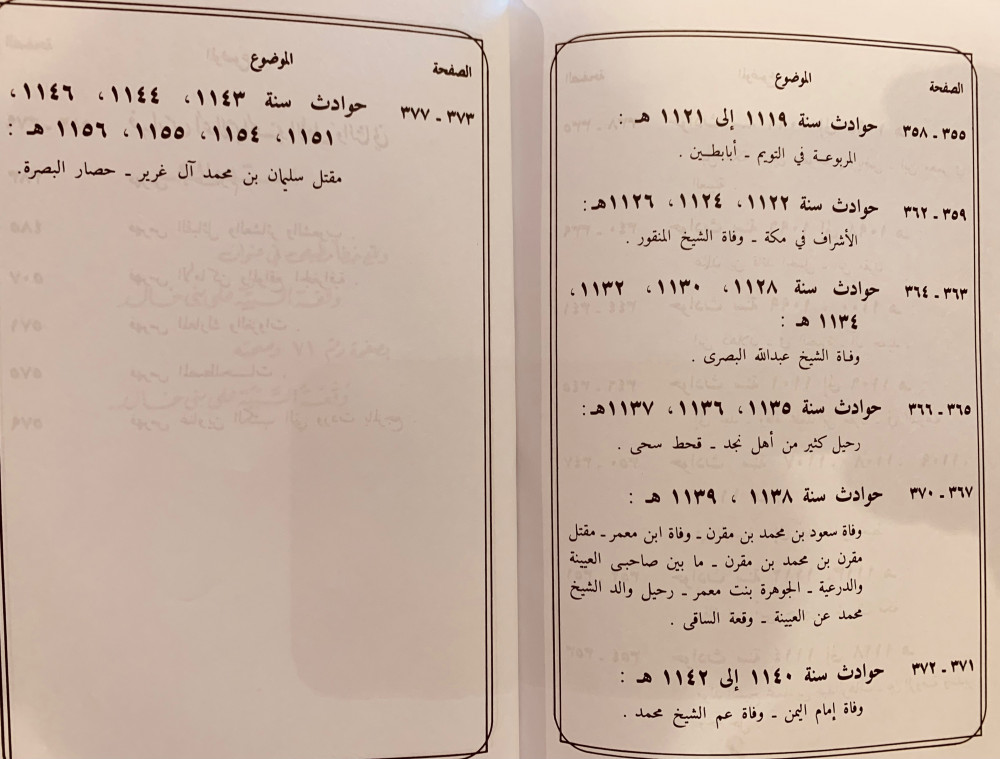 الموضوع الصفحة
حوادث سنة ١١١٩ إلى ١١٢١ هـ : ٣٥٥ ـ ٣٥٨
المربوعة في التويم ـ أبابطين .
حوادث سنة ١١٢٢، ١١٢٤، ١١٢٦هـ: ٣٥٩ ـ ٣٦٢
الأشراف في مكة ـ وفاة الشيخ المنقور .
حوادث سنة ١١٢٨، ١١٣٠، ١١٣٢، ٣٦٣ ـ ٣٦٤
١١٣٤ هـ :
وفاة الشيخ عبدالله البصرى .
حوادث سنة ١١٣٥، ١١٣٦، ١١٣٧هـ: ٣٦٥ ـ ٣٦٦
رحيل كثير من أهل نجد ـ قحط سحى .
حوادث سنة ١١٣٨ ، ١١٣٩ هـ : ٣٦٧ ـ ٣٧٠
وفاة سعود بن محمد بن مقرن ـ وفاة ابن معمر ـ مقتل
مقرن بن محمد بن مقرن ـ ما بين صاحبى العيينة
والدرعية ـ الجوهرة بنت معمر ـ رحيل والد الشيخ
محمد عن العيينة ـ وقعة الساقى .
حوادث سنة ١١٤٠ إلى ١١٤٢ هـ : ٣٧١ ـ ٣٧٢
وفاة إمام اليمن ـ وفاة عم الشيخ محمد .
الموضوع الصفحة
حوادث سنة ١١٤٣، ١١٤٤، ١١٤٦، ٣٧٣ ـ ٣٧٧
١١٥١، ١١٥٤، ١١٥٥، ١١٥٦ هـ :
مقتل سليمان بن محمد آل غرير ـ حصار البصرة.